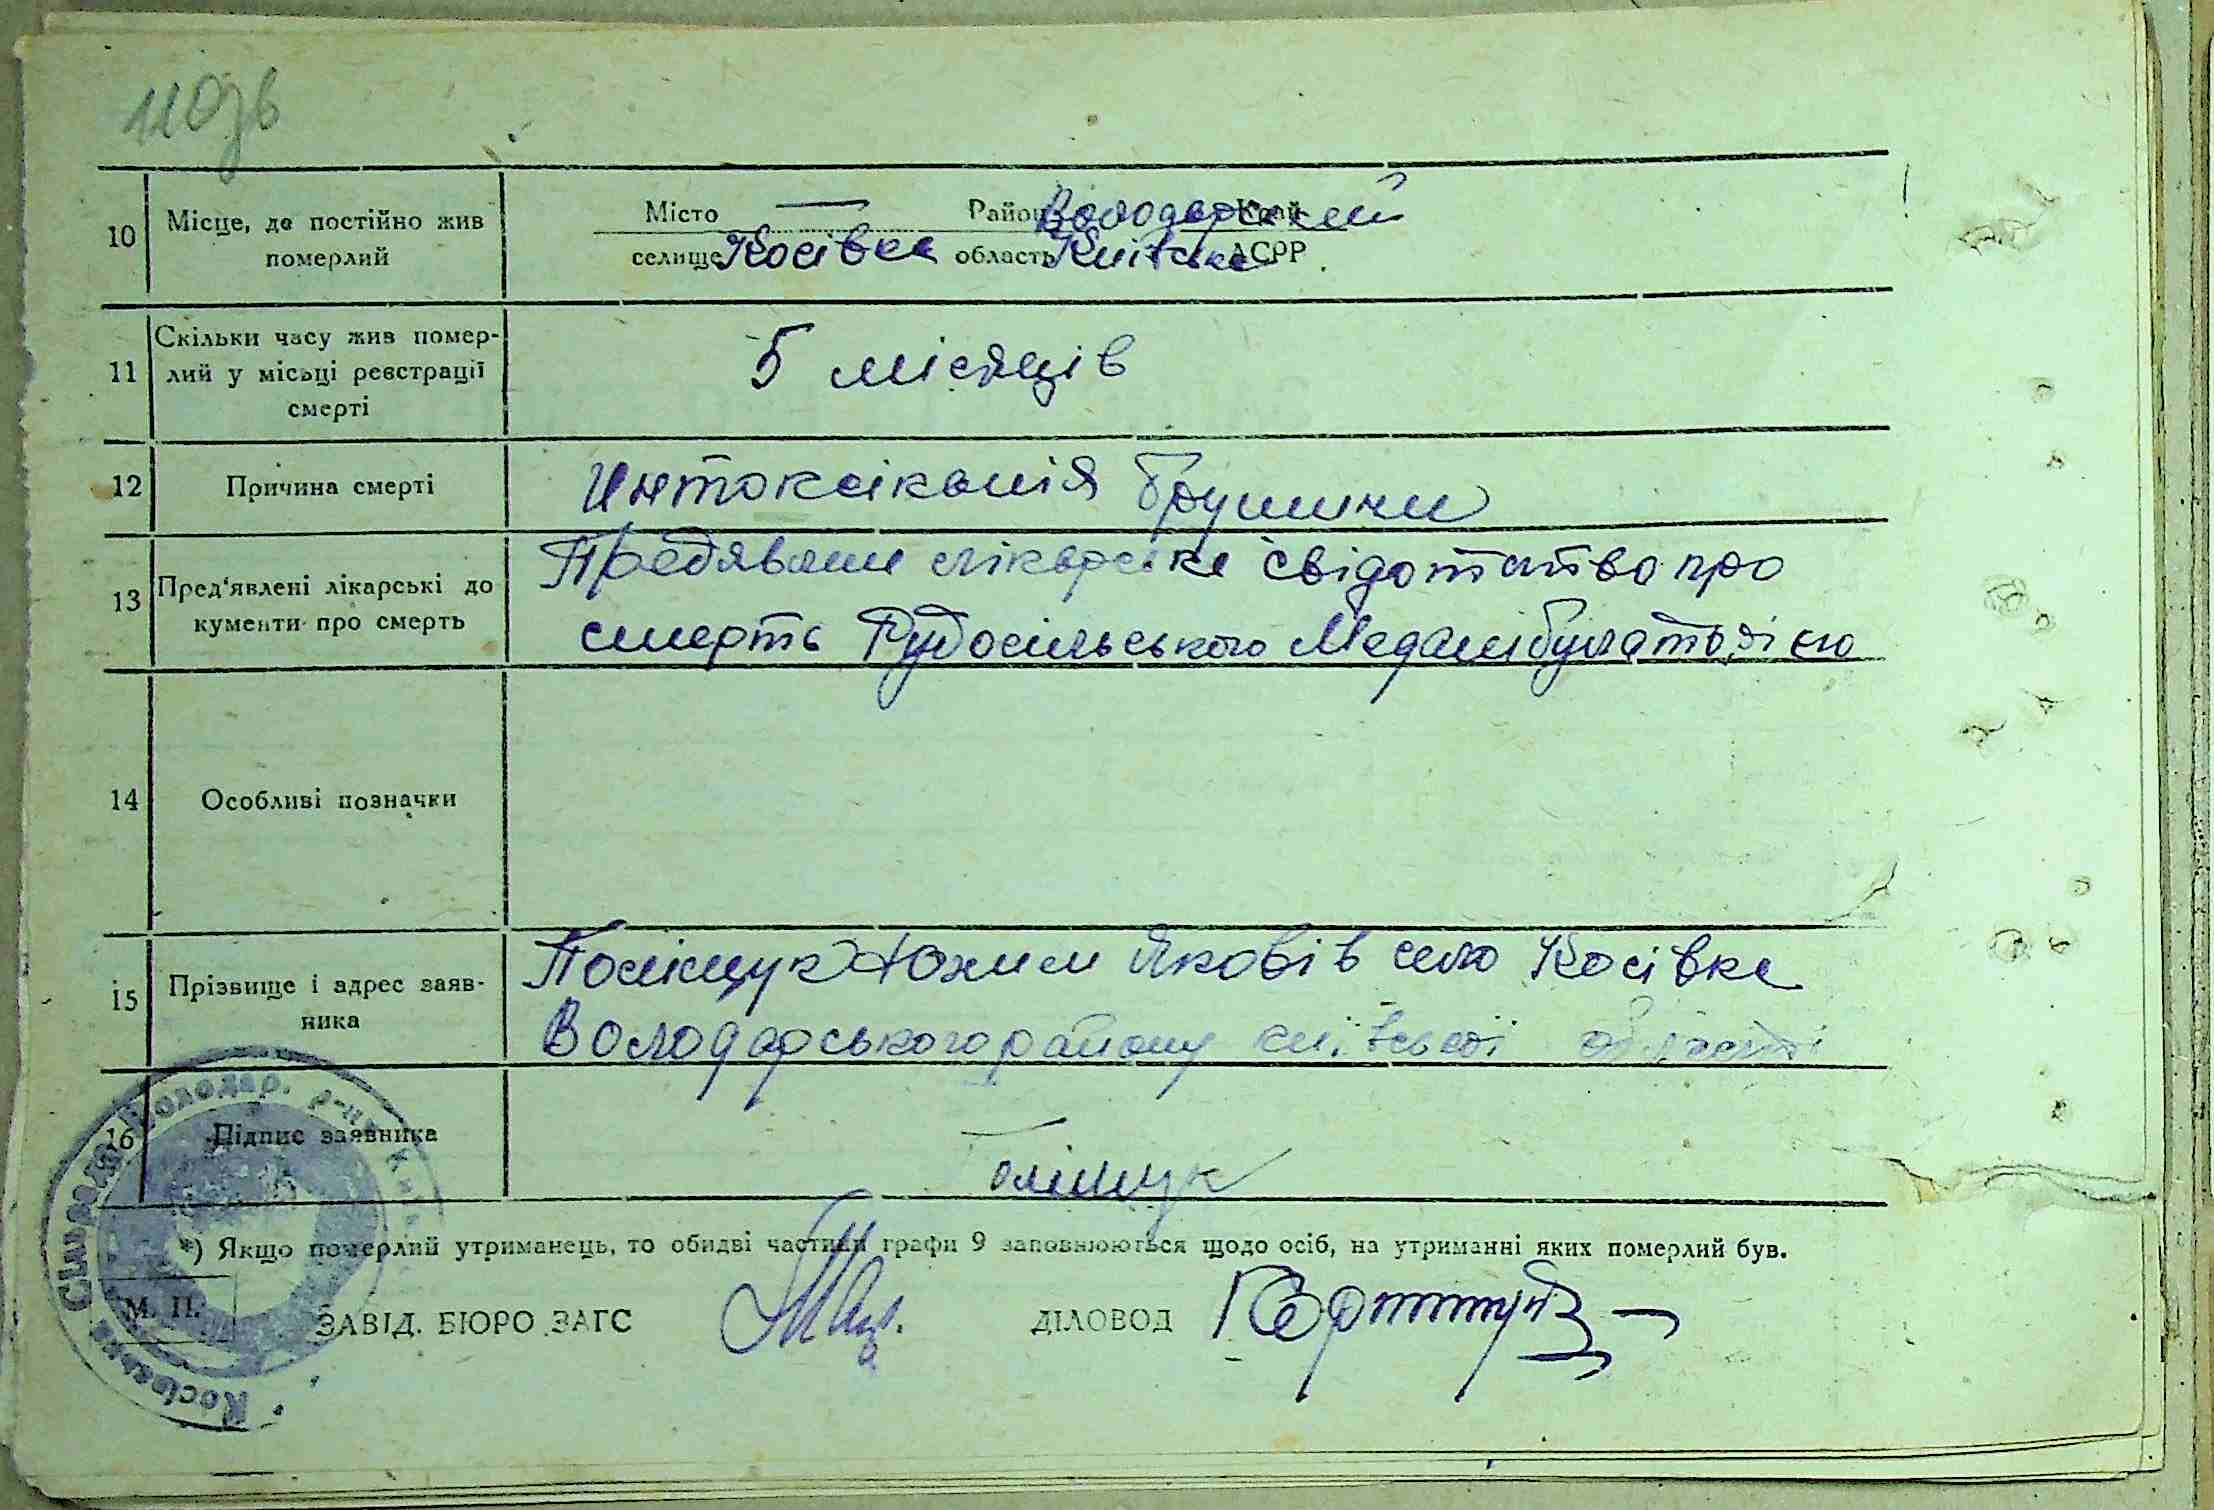 110зв
10 Місце, де постійно жив померлий
Місто — Район Володарський Край
селище Косівка область Київська АСРР.
11 Скільки часу жив помер-
лий у місьці реєстрації
смерті
5 місяців
12 Причина смерті
Интоксікація брушини
13 Пред'явлені лікарські до
кументи про смерть
Предявлени лікарске свідотство про
смерть Рудосільського Медамбулаторією
14 Особливі позначки
15 Прізвище і адрес заяв-
ника
Поліщук Юхим Яковів село Косівка
Володарського району київської області
16 Підпис заявника
Поліщук
*) Якщо померлий утриманець, то обидві частини графи 9 заповнюються щодо осіб, на утриманні яких померлий був.
М. П.
ЗАВІД. БЮРО ЗАГС
ДІЛОВОД
Косівська Сільрада Володар. р-ну